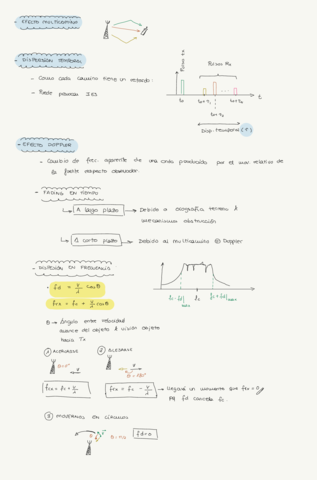 EFECTO MULTICAMINO
DISPERSIÓN TEMPORAL
- Como cada camino tiene un retardo:
- Puede provocar ISI
Pulso Tx
Pulsos Rx
t
Disp. temporal (τ)
EFECTO DOPPLER
- Cambio de frec. aparente de una onda producida por el mov relativo de
la fuente respecto observador.
- FADING EN TIEMPO
A largo plazo → Debido a orografía terreno &
obstrucción
A corto plazo → Debido al multicamino ⊕ Doppler
- DISPERSIÓN EN FRECUENCIA
fd = v/λ cosθ
frx = fc + v/λ cosθ
fc
θ → Ángulo entre velocidad
avance del objeto & unión objeto
hacia Tx
① ACERCARSE
② ALEJARSE
θ=0°
θ=180°
frx = fc + v/λ
frx = fc - v/λ → llegará un momento que frx=0
pq fd cancela fc.
③ MOVERNOS EN CÍRCULOS
fd=0